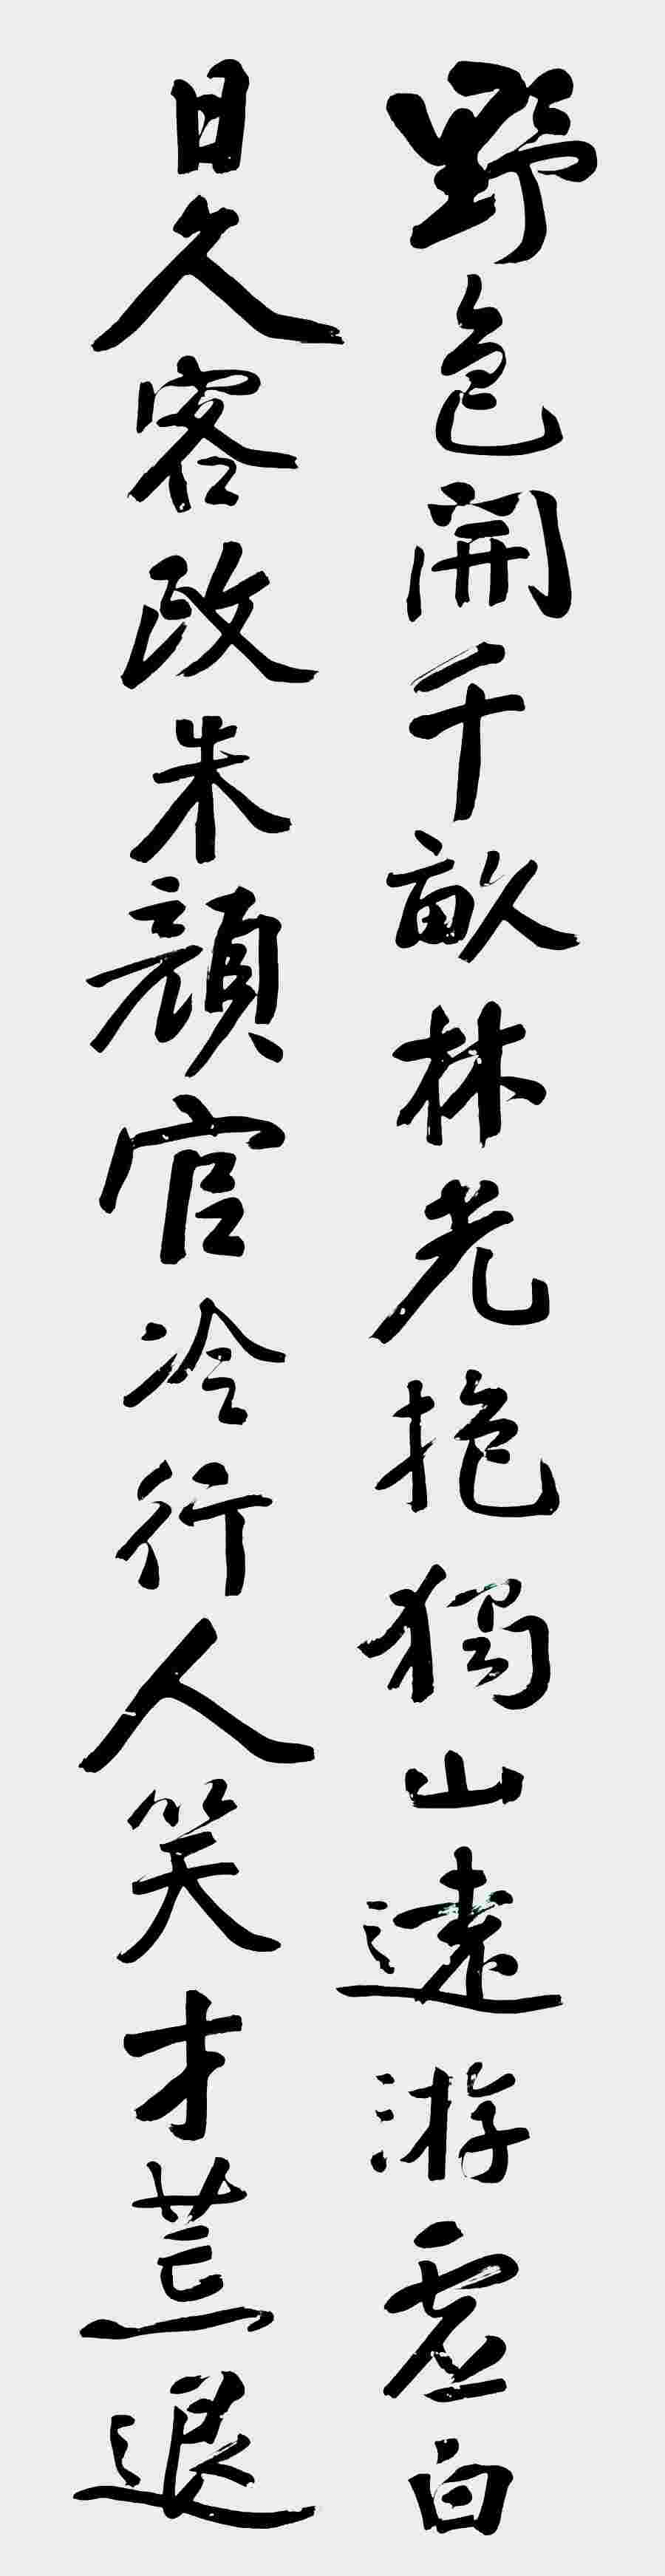 野色開千畝林光抱獨山遠游虛白
日久客改朱顏官冷行人笑才荒退